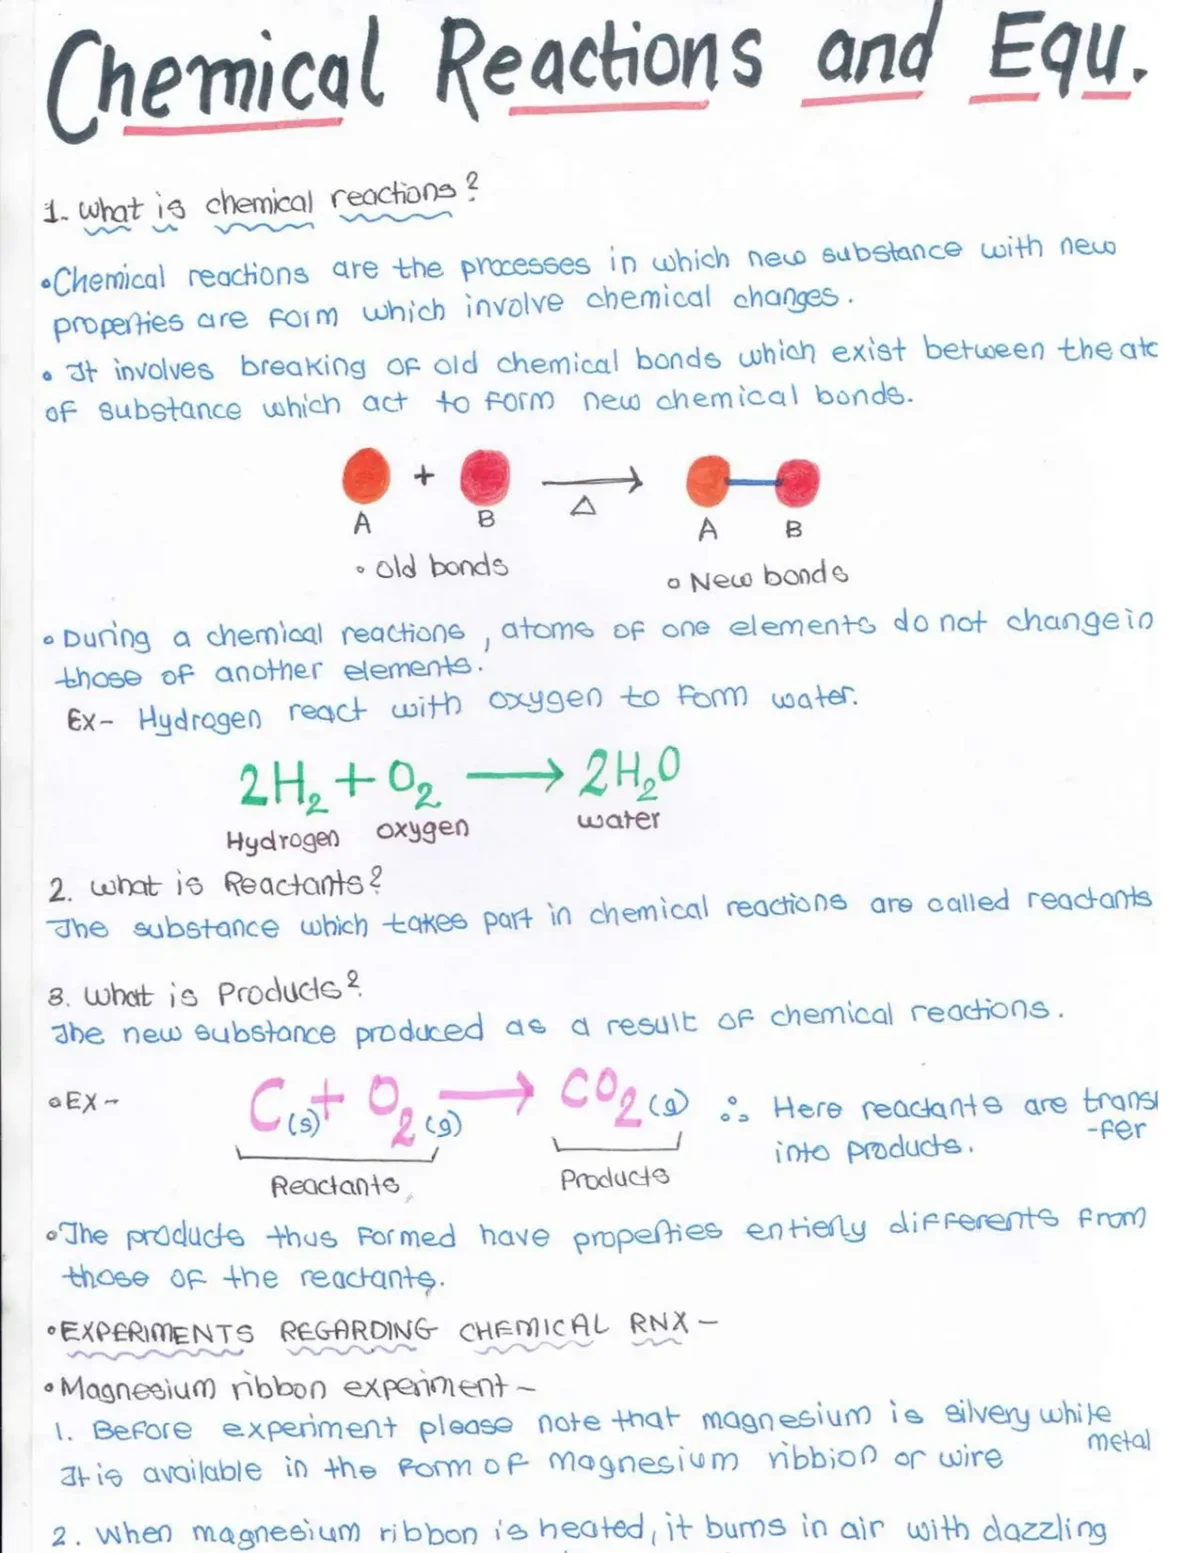 Chemical Reactions and Equ.
1. what is chemical reactions?
•Chemical reactions are the processes in which new substance with new
properties are form which involve chemical changes.
• It involves breaking of old chemical bonds which exist between the
of substance which act to form new chemical bonds.
A + B → A B
Δ
• Old bonds
• New bonds
• During a chemical reactions, atoms of one elements do not change in
those of another elements.
Ex- Hydrogen react with oxygen to form water.
2H₂ + O₂ → 2H₂O
Hydrogen oxygen water
2. what is Reactants?
The substance which takes part in chemical reactions are called reactants
3. What is Products?
The new substance produced as a result of chemical reactions.
•EX- C(s) + O₂(g) → CO₂(g) ∴ Here reactants are transfer
-fer
into products.
Reactants
Products
•The products thus formed have properties entierly differents from
those of the reactants.
•EXPERIMENTS REGARDING CHEMICAL RNX -
•Magnesium ribbon experiment -
1. Before experiment please note that magnesium is silvery white
metal
It is available in the form of magnesium ribbion or wire
2. When magnesium ribbon is heated, it burns in air with dazzling